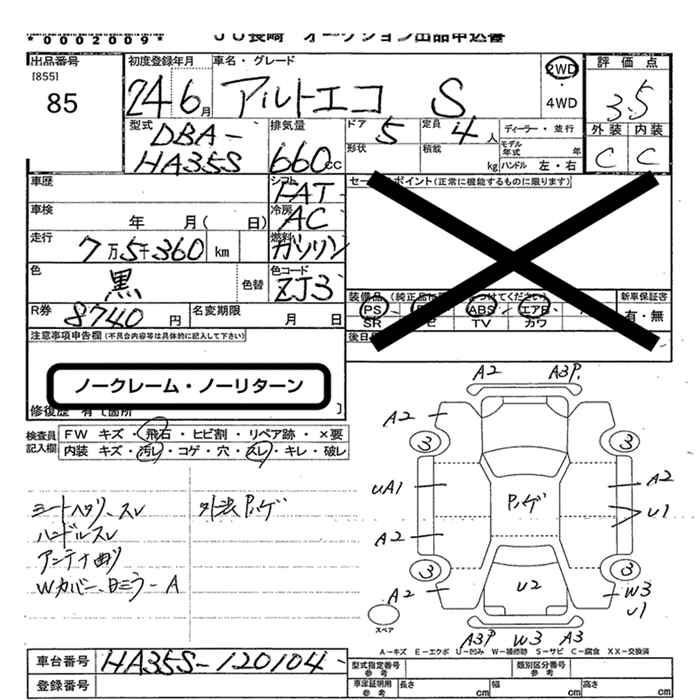 *0002009*
JU長崎 オークション出品申込書
出品番号
[855]
85
初度登録年月
24 6月
車名・グレード
アルトエコ S
2WD
・
4WD
評価点
3.5
外装 内装
C C
型式
DBA-
HA35S
排気量
660cc
ドア 5
定員 4人
形状
積載 kg
ディーラー・並行
モデル年式 年
ハンドル 左・右
車歴
シフト
FAT
車検 年 月( 日)
冷房
AC
走行
7万5千360 km
燃料
ガソリン
色
黒
色替
色コード
ZJ3
R券
8740円
名変期限 月 日
セールスポイント(正常に機能するものに限ります)
装備品
PS ABS エアB
SR TV カワ
新車保証書
有・無
後日
注意事項申告欄(不具合内容等は具体的に記入して下さい)
ノークレーム・ノーリターン
修復歴 有〔箇所 〕
検査員
記入欄
FW キズ・飛石・ヒビ割・リペア跡・×要
内装 キズ・汚レ・コゲ・穴・スレ・キレ・破レ
シートヘタリ、スレ
ハンドルスレ
アンテナ曲り
Wカバー、
ミラーA
外法ハゲ
A2 A3P.
A2
3 3
UA1
ハゲ
A2
U1
A2
3 3
A2
U2
W3
U1
スペア
A3P W3 A3
A-キズ E-エクボ U-凹み W-補修跡 S-サビ C-腐食 XX-交換済
車台番号 HA35S-120104-
登録番号
型式指定番号
参考
類別区分番号
参考
車庫証明用
参考
長さ cm
幅 cm
高さ cm